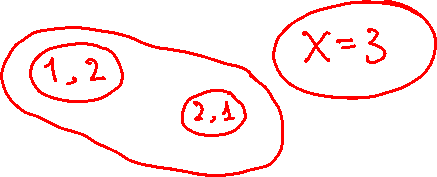 1,2
2,1
X=3